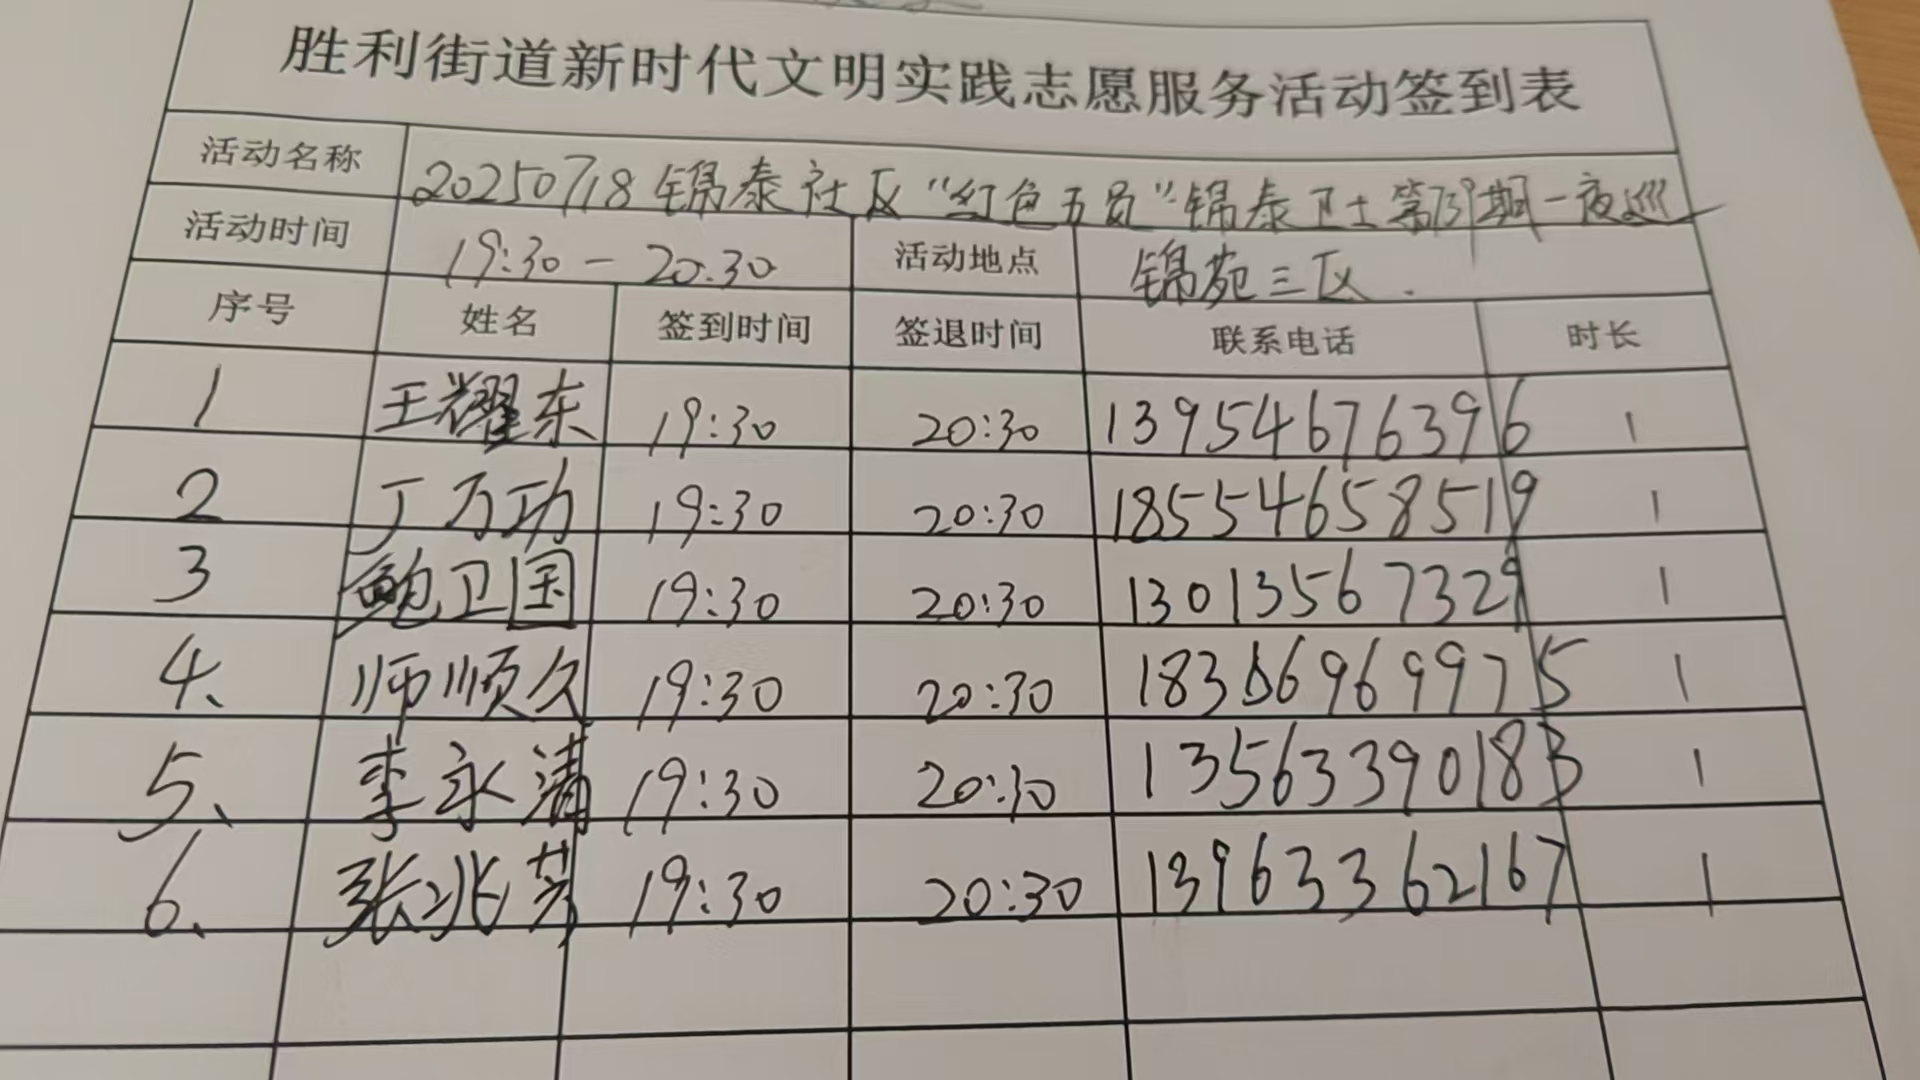 胜利街道新时代文明实践志愿服务活动签到表
活动名称 20250718 锦泰社区“红色五员”锦泰卫士第739期—夜巡
活动时间 19:30 — 20:30 活动地点 锦苑三区.
序号 姓名 签到时间 签退时间 联系电话 时长
1 王耀东 19:30 20:30 13954676396 1
2 丁万功 19:30 20:30 18554658519 1
3 鲍卫国 19:30 20:30 13013567329 1
4、 师顺久 19:30 20:30 1836969975 1
5、 李永清 19:30 20:30 13563390183 1
6、 张兆芳 19:30 20:30 13963362167 1